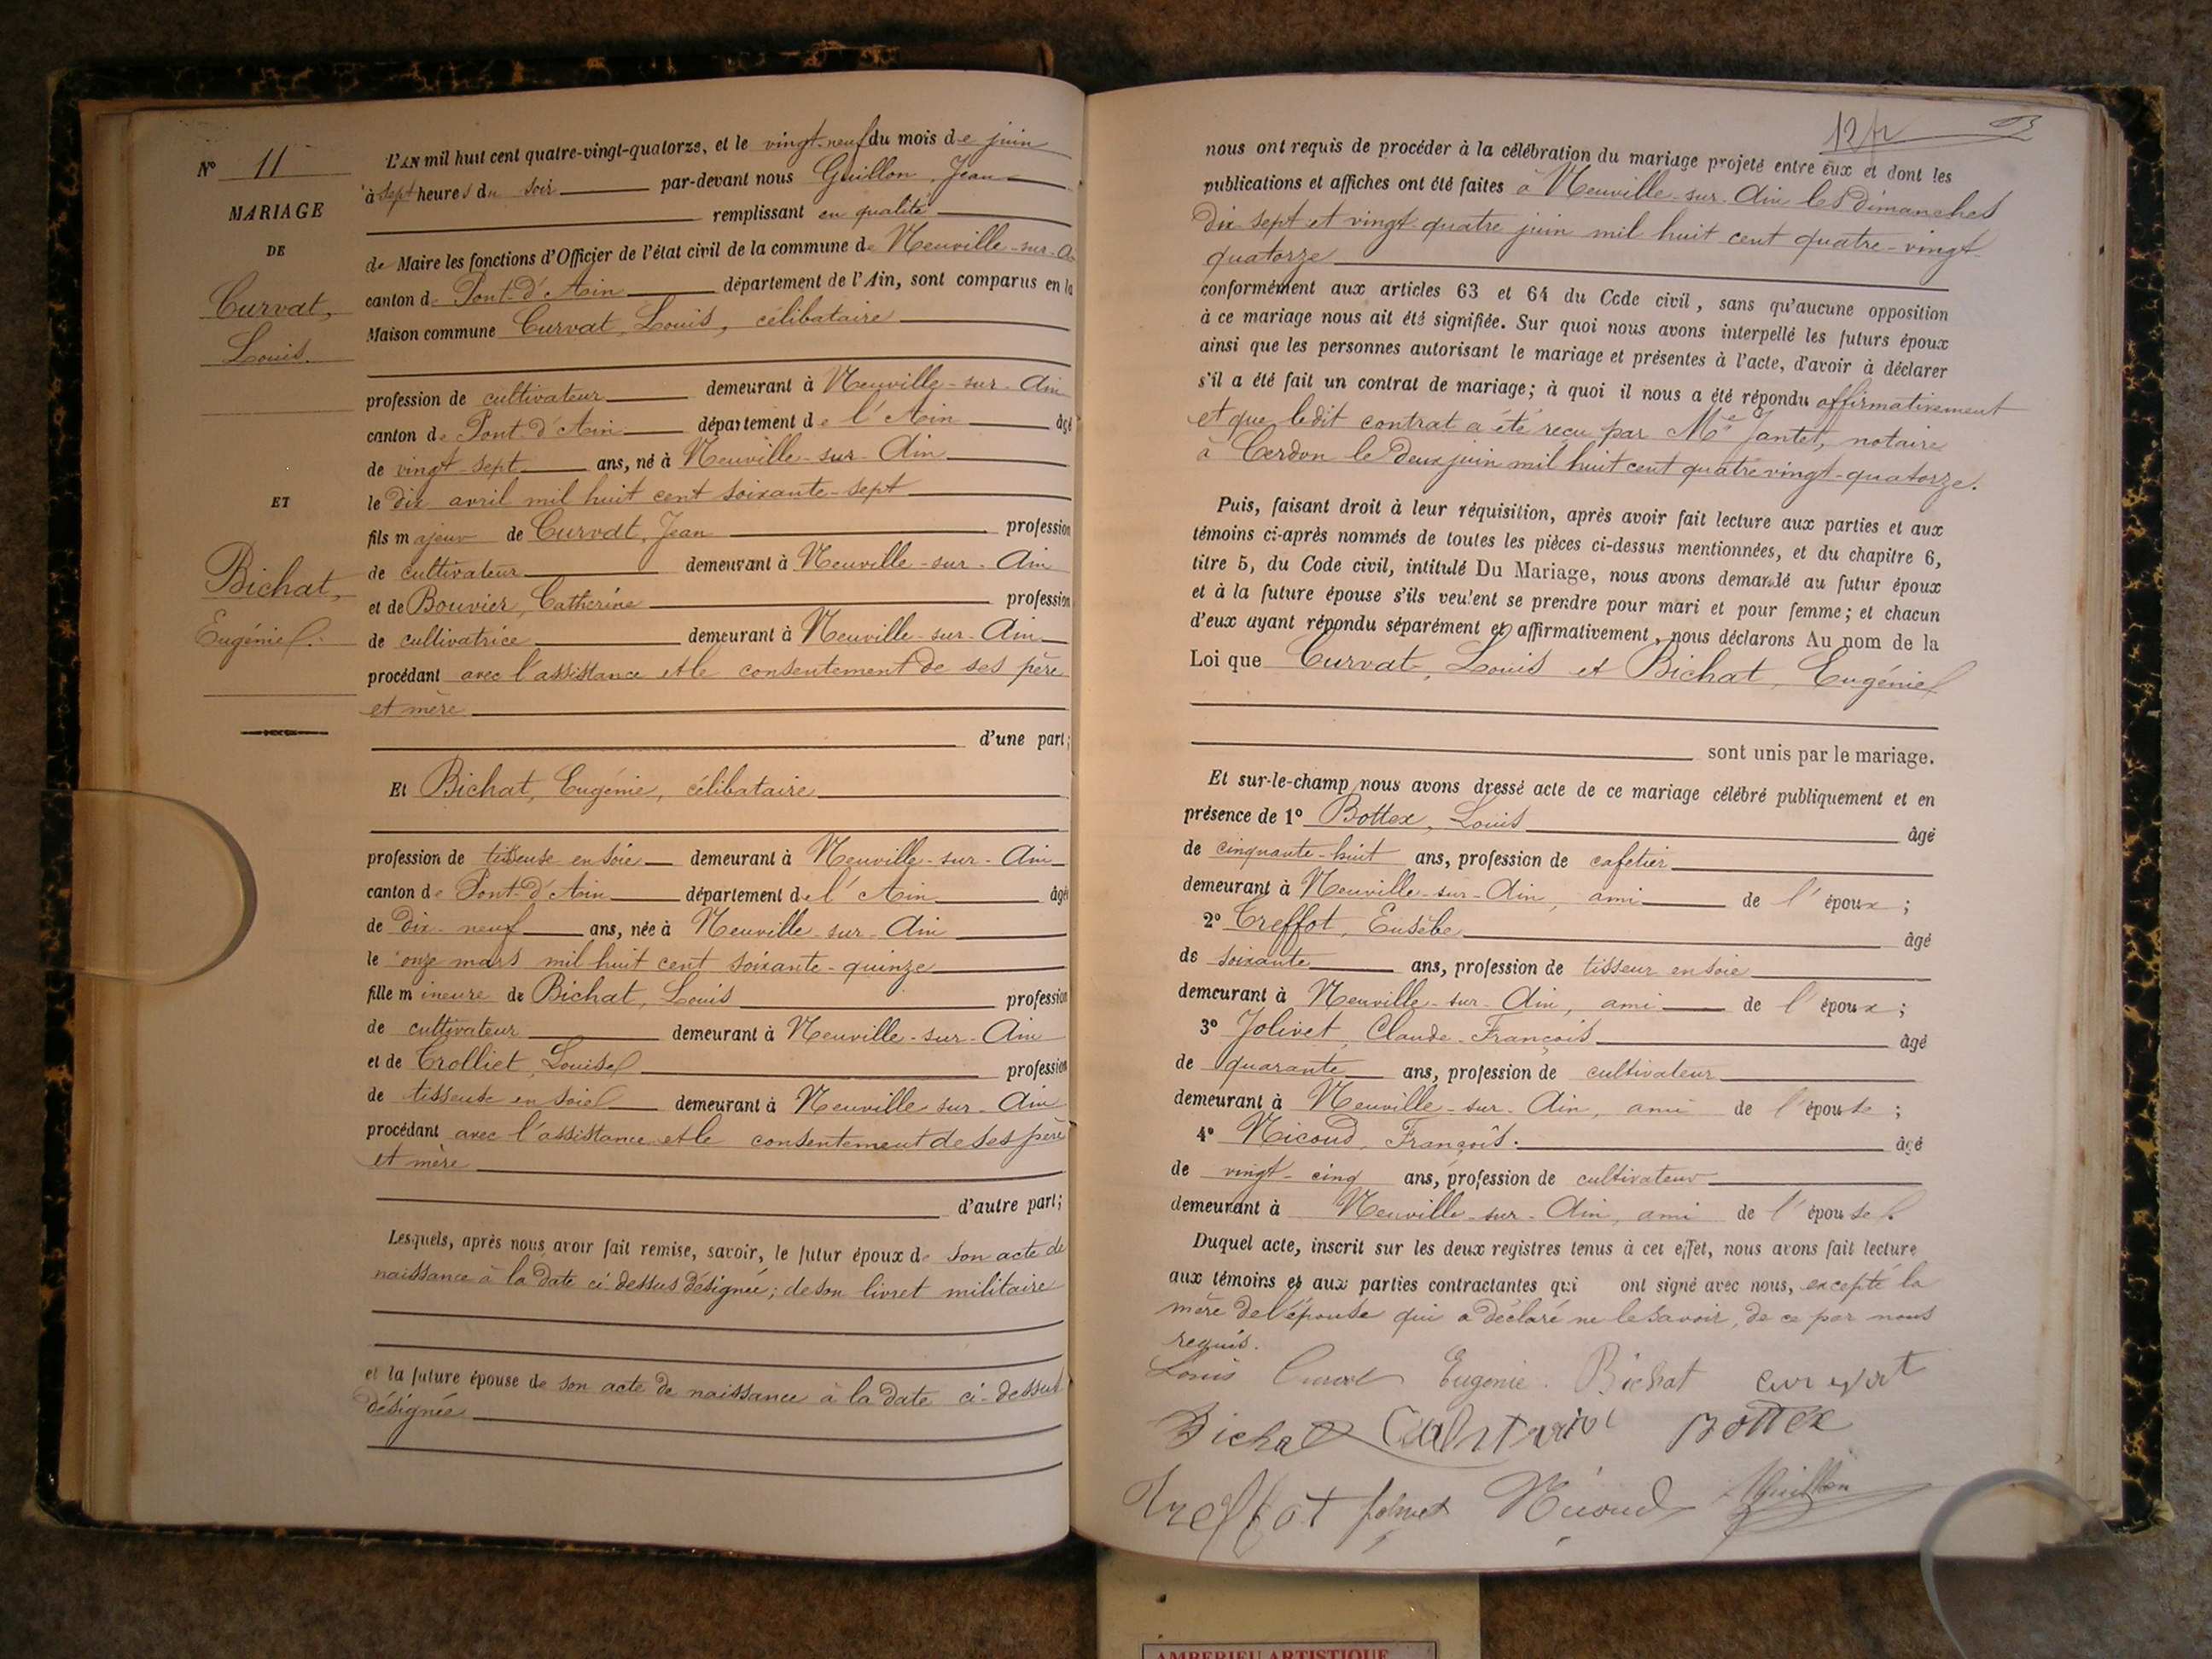 N° 11
MARIAGE
DE
Curvat,
Louis.
ET
Bichat,
Eugénie.
L'AN mil huit cent quatre-vingt-quatorze, et le vingt-neuf du mois de juin
à sept heures du soir par-devant nous Guillon, Jean
remplissant en qualité
de Maire les fonctions d'Officier de l'état civil de la commune de Neuville-sur-Ain
canton de Pont-d'Ain département de l'Ain, sont comparus en la
Maison commune Curvat, Louis, célibataire
profession de cultivateur demeurant à Neuville-sur-Ain
canton de Pont-d'Ain département de l'Ain âgé
de vingt-sept ans, né à Neuville-sur-Ain
le dix avril mil huit cent soixante-sept
fils majeur de Curvat, Jean profession
de cultivateur demeurant à Neuville-sur-Ain
et de Bouvier, Catherine profession
de cultivatrice demeurant à Neuville-sur-Ain
procédant avec l'assistance et le consentement de ses père
et mère
d'une part;
Et Bichat, Eugénie, célibataire
profession de tisseuse en soie demeurant à Neuville-sur-Ain
canton de Pont-d'Ain département de l'Ain âgée
de dix-neuf ans, née à Neuville-sur-Ain
le onze mars mil huit cent soixante-quinze
fille mineure de Bichat, Louis profession
de cultivateur demeurant à Neuville-sur-Ain
et de Trolliet, Louise profession
de tisseuse en soie demeurant à Neuville sur-Ain
procédant avec l'assistance et le consentement de ses père
et mère
d'autre part;
Lesquels, après nous avoir fait remise, savoir, le futur époux de son acte de
naissance à la date ci-dessus désignée; de son livret militaire
et la future épouse de son acte de naissance à la date ci-dessus
désignée
12
nous ont requis de procéder à la célébration du mariage projeté entre eux et dont les
publications et affiches ont été faites à Neuville-sur-Ain les Dimanches
dix-sept et vingt-quatre juin mil huit cent quatre-vingt-
quatorze
conformément aux articles 63 et 64 du Code civil, sans qu'aucune opposition
à ce mariage nous ait été signifiée. Sur quoi nous avons interpellé les futurs époux
ainsi que les personnes autorisant le mariage et présentes à l'acte, d'avoir à déclarer
s'il a été fait un contrat de mariage; à quoi il nous a été répondu affirmativement
et que ledit contrat a été reçu par Me Jantet, notaire
à Cerdon le deux juin mil huit cent quatre vingt-quatorze.
Puis, faisant droit à leur réquisition, après avoir fait lecture aux parties et aux
témoins ci-après nommés de toutes les pièces ci-dessus mentionnées, et du chapitre 6,
titre 5, du Code civil, intitulé Du Mariage, nous avons demandé au futur époux
et à la future épouse s'ils veulent se prendre pour mari et pour femme; et chacun
d'eux ayant répondu séparément et affirmativement, nous déclarons Au nom de la
Loi que Curvat, Louis et Bichat, Eugénie
sont unis par le mariage.
Et sur-le-champ nous avons dressé acte de ce mariage célébré publiquement et en
présence de 1° Bottex, Louis âgé
de cinquante-huit ans, profession de cafetier
demeurant à Neuville-sur-Ain, ami de l'époux;
2° Treffot, Eusèbe âgé
de soixante ans, profession de tisseur en soie
demeurant à Neuville-sur-Ain, ami de l'époux;
3° Jolivet, Claude-François âgé
de quarante ans, profession de cultivateur
demeurant à Neuville-sur-Ain, ami de l'épouse;
4° Nicoud, François. âgé
de vingt-cinq ans, profession de cultivateur
demeurant à Neuville-sur-Ain, ami de l'épouse.
Duquel acte, inscrit sur les deux registres tenus à cet effet, nous avons fait lecture
aux témoins et aux parties contractantes qui ont signé avec nous, excepté la
mère de l'épouse qui a déclaré ne le savoir, de ce par nous
requis.
Louis Curvat Eugénie Bichat
Bichat Bottex
Treffot Jolivet Nicoud Guillon
AMBERIEU ARTISTIQUE